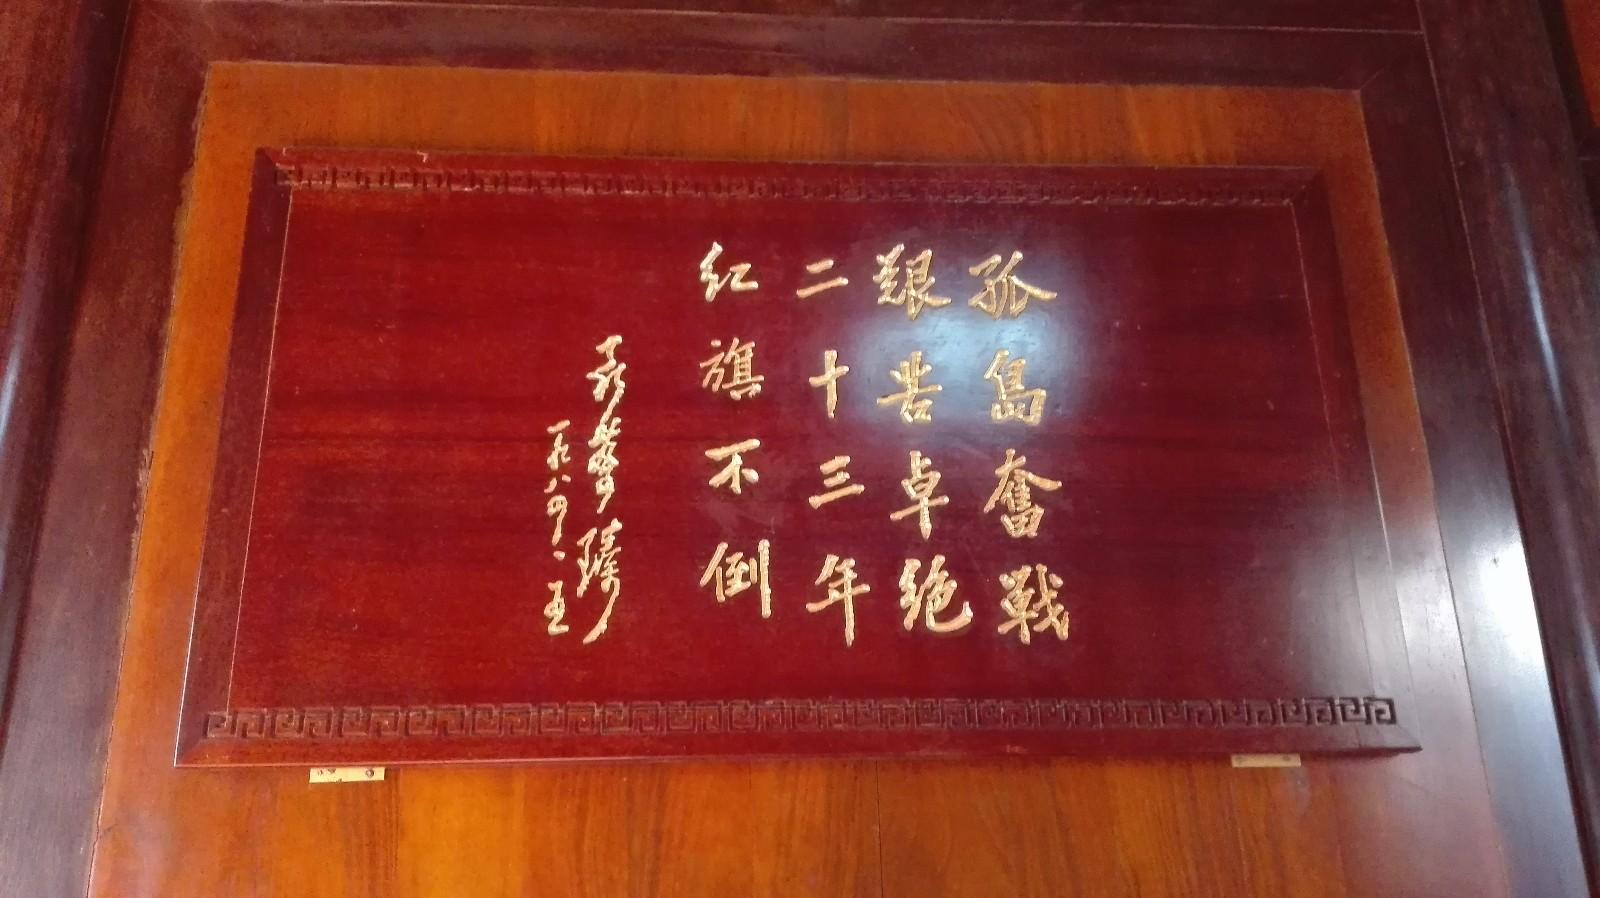 孤島奮戰
艰苦卓绝
二十三年
红旗不倒
聂荣臻
一九八四、一、五